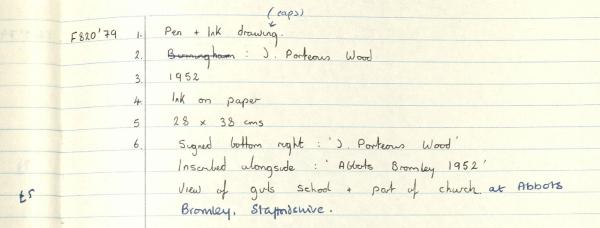 (caps)
F820'79 1. Pen + Ink drawing.
2. Burmingham : J. Porteous Wood
3. 1952
4. Ink on paper
5 28 x 38 cms
6. Signed bottom right : 'J. Porteous Wood'
Inscribed alongside : 'Abbots Bromley 1952'
View of girls school + part of church at Abbots
Bromley, Staffordshire.